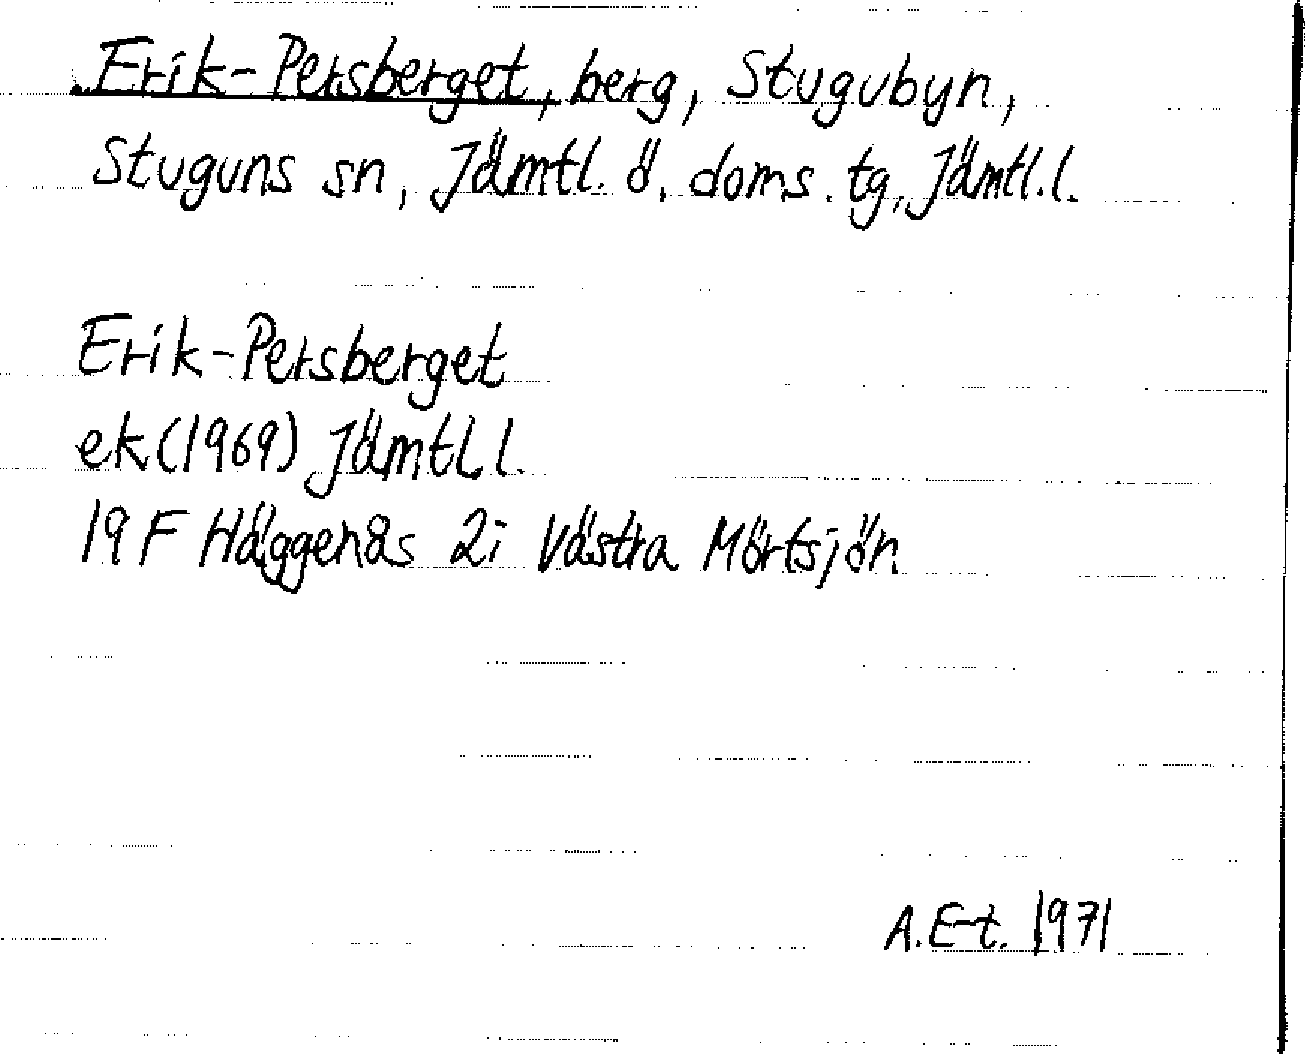 Erik-Persberget, berg, Stugubyn,
Stuguns sn, Jämtl. ö. doms. tg, Jämtl. l.
Erik-Persberget
ek (1969) Jämtl. l.
19 F Häggenås 2i Västra Mörtsjön
A.E-t. 1971